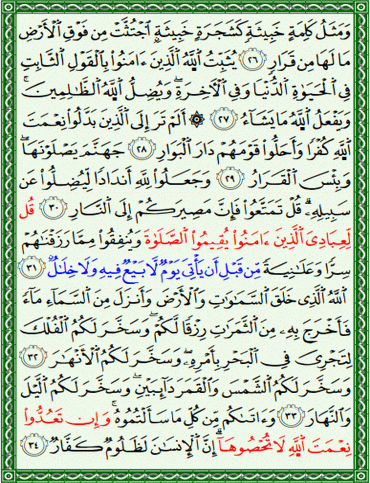 وَمَثَلُ كَلِمَةٍ خَبِيثَةٍ كَشَجَرَةٍ خَبِيثَةٍ ٱجْتُثَّتْ مِن فَوْقِ ٱلْأَرْضِ
مَا لَهَا مِن قَرَارٍ ٢٦ يُثَبِّتُ ٱللَّهُ ٱلَّذِينَ ءَامَنُوا۟ بِٱلْقَوْلِ ٱلثَّابِتِ
فِى ٱلْحَيَوٰةِ ٱلدُّنْيَا وَفِى ٱلْءَاخِرَةِ ۖ وَيُضِلُّ ٱللَّهُ ٱلظَّـٰلِمِينَ ۚ
وَيَفْعَلُ ٱللَّهُ مَا يَشَآءُ ٢٧ ۞ أَلَمْ تَرَ إِلَى ٱلَّذِينَ بَدَّلُوا۟ نِعْمَتَ
ٱللَّهِ كُفْرًا وَأَحَلُّوا۟ قَوْمَهُمْ دَارَ ٱلْبَوَارِ ٢٨ جَهَنَّمَ يَصْلَوْنَهَا ۖ
وَبِئْسَ ٱلْقَرَارُ ٢٩ وَجَعَلُوا۟ لِلَّهِ أَندَادًا لِّيُضِلُّوا۟ عَن
سَبِيلِهِۦ ۗ قُلْ تَمَتَّعُوا۟ فَإِنَّ مَصِيرَكُمْ إِلَى ٱلنَّارِ ٣٠ قُل
لِّعِبَادِىَ ٱلَّذِينَ ءَامَنُوا۟ يُقِيمُوا۟ ٱلصَّلَوٰةَ وَيُنفِقُوا۟ مِمَّا رَزَقْنَـٰهُمْ
سِرًّا وَعَلَانِيَةً مِّن قَبْلِ أَن يَأْتِىَ يَوْمٌ لَّا بَيْعٌ فِيهِ وَلَا خِلَـٰلٌ ٣١
ٱللَّهُ ٱلَّذِى خَلَقَ ٱلسَّمَـٰوَٰتِ وَٱلْأَرْضَ وَأَنزَلَ مِنَ ٱلسَّمَآءِ مَآءً
فَأَخْرَجَ بِهِۦ مِنَ ٱلثَّمَرَٰتِ رِزْقًا لَّكُمْ ۖ وَسَخَّرَ لَكُمُ ٱلْفُلْكَ
لِتَجْرِىَ فِى ٱلْبَحْرِ بِأَمْرِهِۦ ۖ وَسَخَّرَ لَكُمُ ٱلْأَنْهَـٰرَ ٣٢
وَسَخَّرَ لَكُمُ ٱلشَّمْسَ وَٱلْقَمَرَ دَآئِبَيْنِ ۖ وَسَخَّرَ لَكُمُ ٱلَّيْلَ
وَٱلنَّهَارَ ٣٣ وَءَاتَىٰكُم مِّن كُلِّ مَا سَأَلْتُمُوهُ ۚ وَإِن تَعُدُّوا۟
نِعْمَتَ ٱللَّهِ لَا تُحْصُوهَآ ۗ إِنَّ ٱلْإِنسَـٰنَ لَظَلُومٌ كَفَّارٌ ٣٤